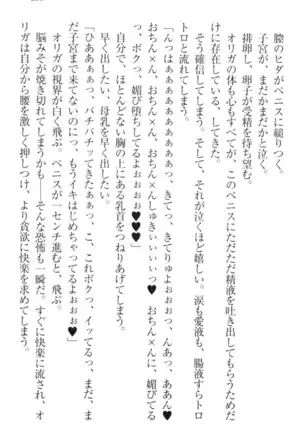 膣のヒダがペニスに縋りつく。
子宮が、まだかまだかと泣く。
排卵し、卵子が受精を待ち望む。
オリガの体も心もすべてが、このペニスにただただ精液を吐き出してもらうためだ
けに存在している、してきた。
そう確信してしまう。そして、それが泣くほど嬉しい。涙も愛液も、腸液すらトロ
トロと流れてしまう。
「んっはぁぁぁっ、ぁぁぁっ、きてっ、きてりゅよぉぉぉっ、んっ、ああん♥
おち×ん、おちん×んしゅきぃぃぃぃっ♥ おち×ん×んに、媚びてる
っ、ボクっ、媚び堕ちしてるよぉぉぉっ♥」
自分で、ほとんどない胸の上にある乳首をつねりあげてしまう。
早く出したい、母乳を早く出したい。
「ひああぁぁっ、バチバチッてきたぁぁっ、こ、これボクっ、イッてるっ、まだ、ま
だ子宮まで来てないのにっ、もうイキはじめちゃってるよぉぉぉっ♥」
オリガの視界が白く飛ぶ。ペニスが一センチ進むと、飛ぶ。
脳みそが焼き切れてしまうかも――そんな恐怖も一瞬だ。すぐに快楽に流され、オ
リガは自分から腰を激しく押しつけ、より貪欲に快楽を求めてしまう。